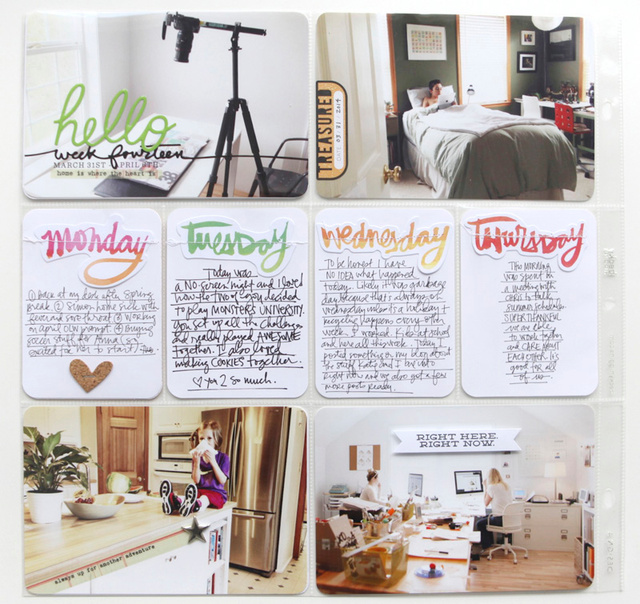 hello
week fourteen
MARCH 31ST - APRIL 6TH
home is where the heart is
TREASURED
DATE 03 31 2014
monday
① back at my desk after Spring
Break ② Simon home sick with
③ working
on April OLW prompt ④ Buying
soccer stuff for Anna (so
excited for her to start)
TUESDAY
Today was
a NO-Screen night and I loved
how the two of you decided
to play MONSTERS UNIVERSITY.
You set up all the challenges
and really played AWESOME
together. I also loved
making COOKIES together.
♡ you 2 so much.
wednesday
To be honest I have
NO IDEA what happened
today. Likely it was garbage
day because that's always on
Wednesday unless it's a holiday &
recycling happens every other
week. I worked. Kids at school
and here all this week. Today I
posted something on my blog about
right now and we also got a few
more posts ready.
THURSDAY
This MORNING
was spent in
a meeting with
CHRIS to talk
summer schedule.
SUPER THANKFUL
we are able
to work together
and CARE ABOUT
EACH OTHER. It's
good for all
of us.
always up for another adventure
RIGHT HERE.
RIGHT NOW.